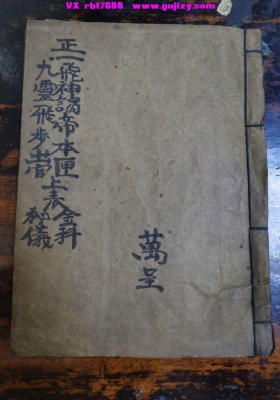 VX rbt7688 www.gujizy.com
正一飛神謁帝本匣
九靈飛步章
上表金科
秘儀
萬呈